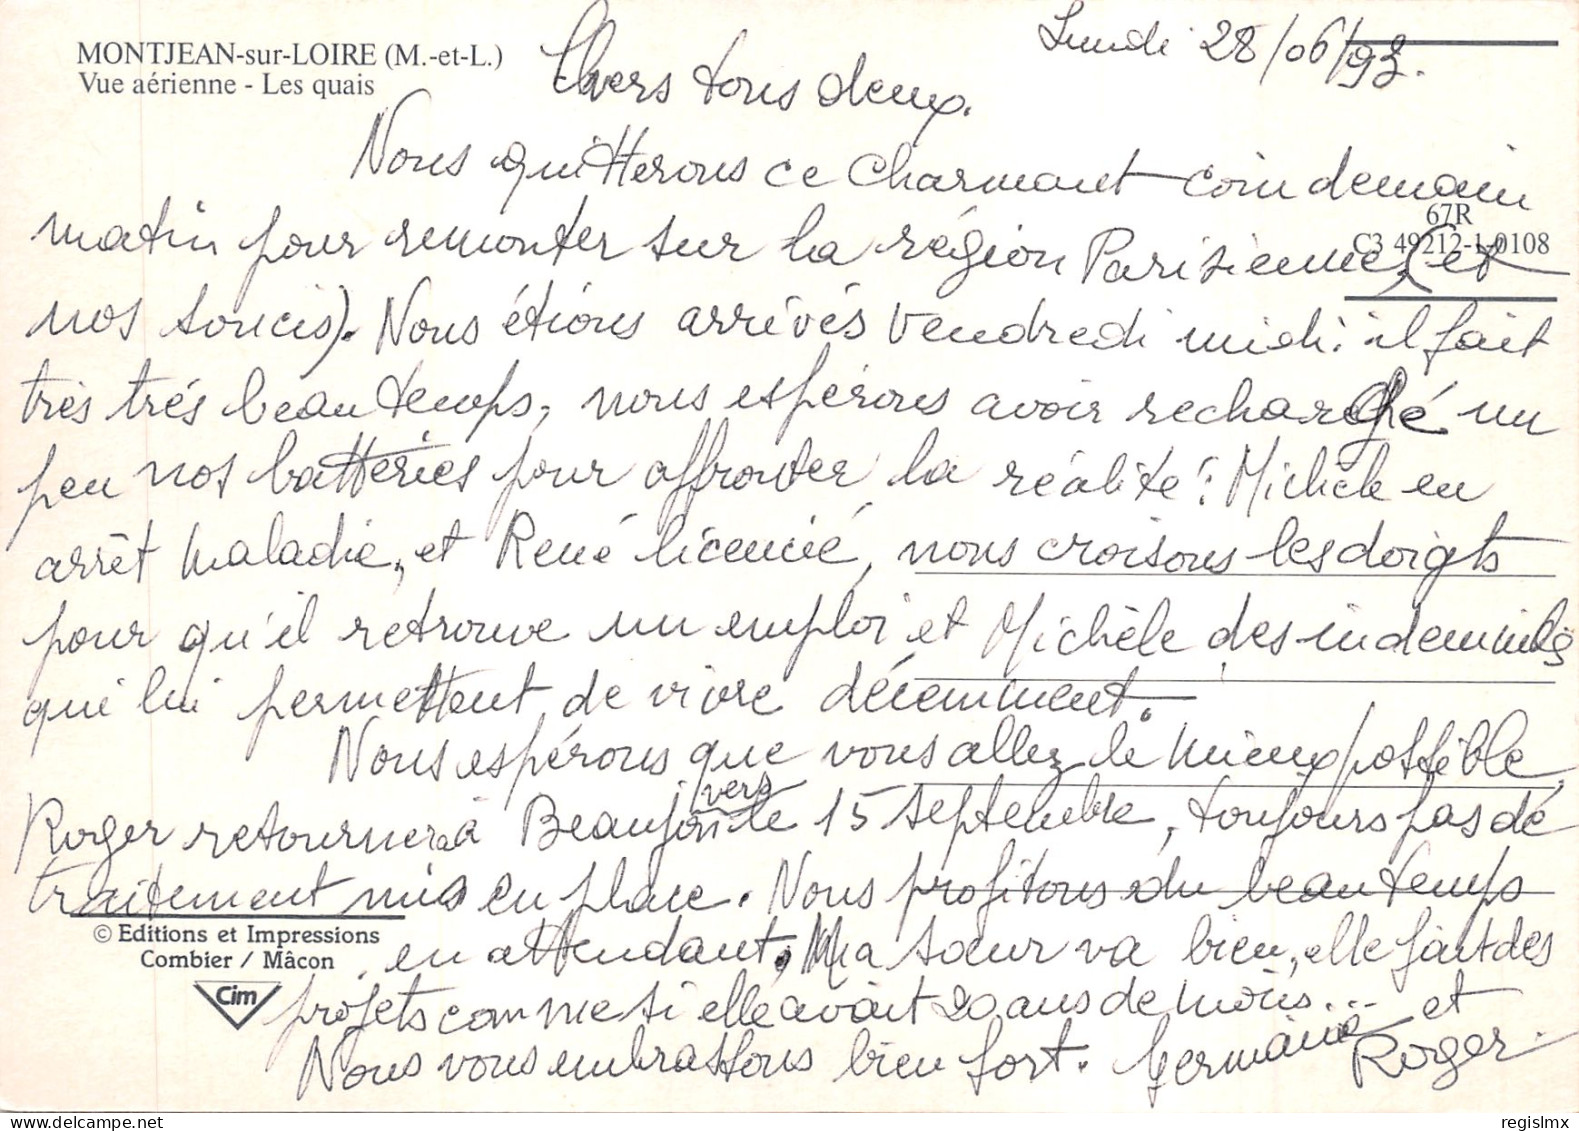 MONTJEAN-sur-LOIRE (M.-et-L.)
Vue aérienne - Les quais
Lundi 28/06/93.
Chers tous deux.
Nous quitterons ce charmant coin demain
67R
C3 49212-1-0108
matin pour remonter sur la région Parisienne (et
nos soucis). Nous étions arrivés vendredi midi : il fait
très très beau temps, nous espérons avoir rechargé un
peu nos batteries pour affronter la réalité : Michèle en
arrêt maladie, et René licencié, nous croisons les doigts
pour qu'il retrouve un emploi et Michèle des indemnités
qui lui permettent de vivre décemment.
Nous espérons que vous allez le mieux possible,
Roger retournera à Beaujon vers le 15 septembre, toujours pas de
traitement mis en place. Nous profitons du beau temps
en attendant. Ma sœur va bien, elle fait des
projets comme si elle avait 20 ans de moins... et
Nous vous embrassons bien fort. Germaine Roger.
© Editions et Impressions
Combier / Mâcon
Cim
regislmx